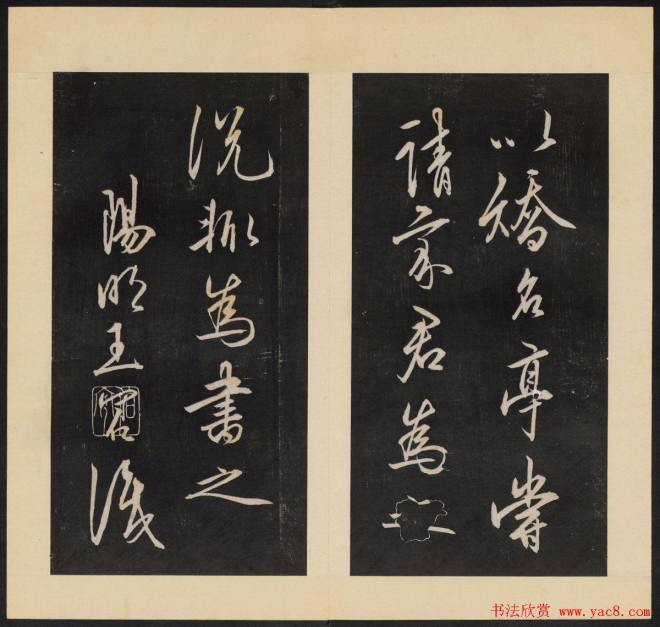 以矯名亭嘗
請家君為
說輒為書之
陽明王守仁識
书法欣赏 www.yac8.com